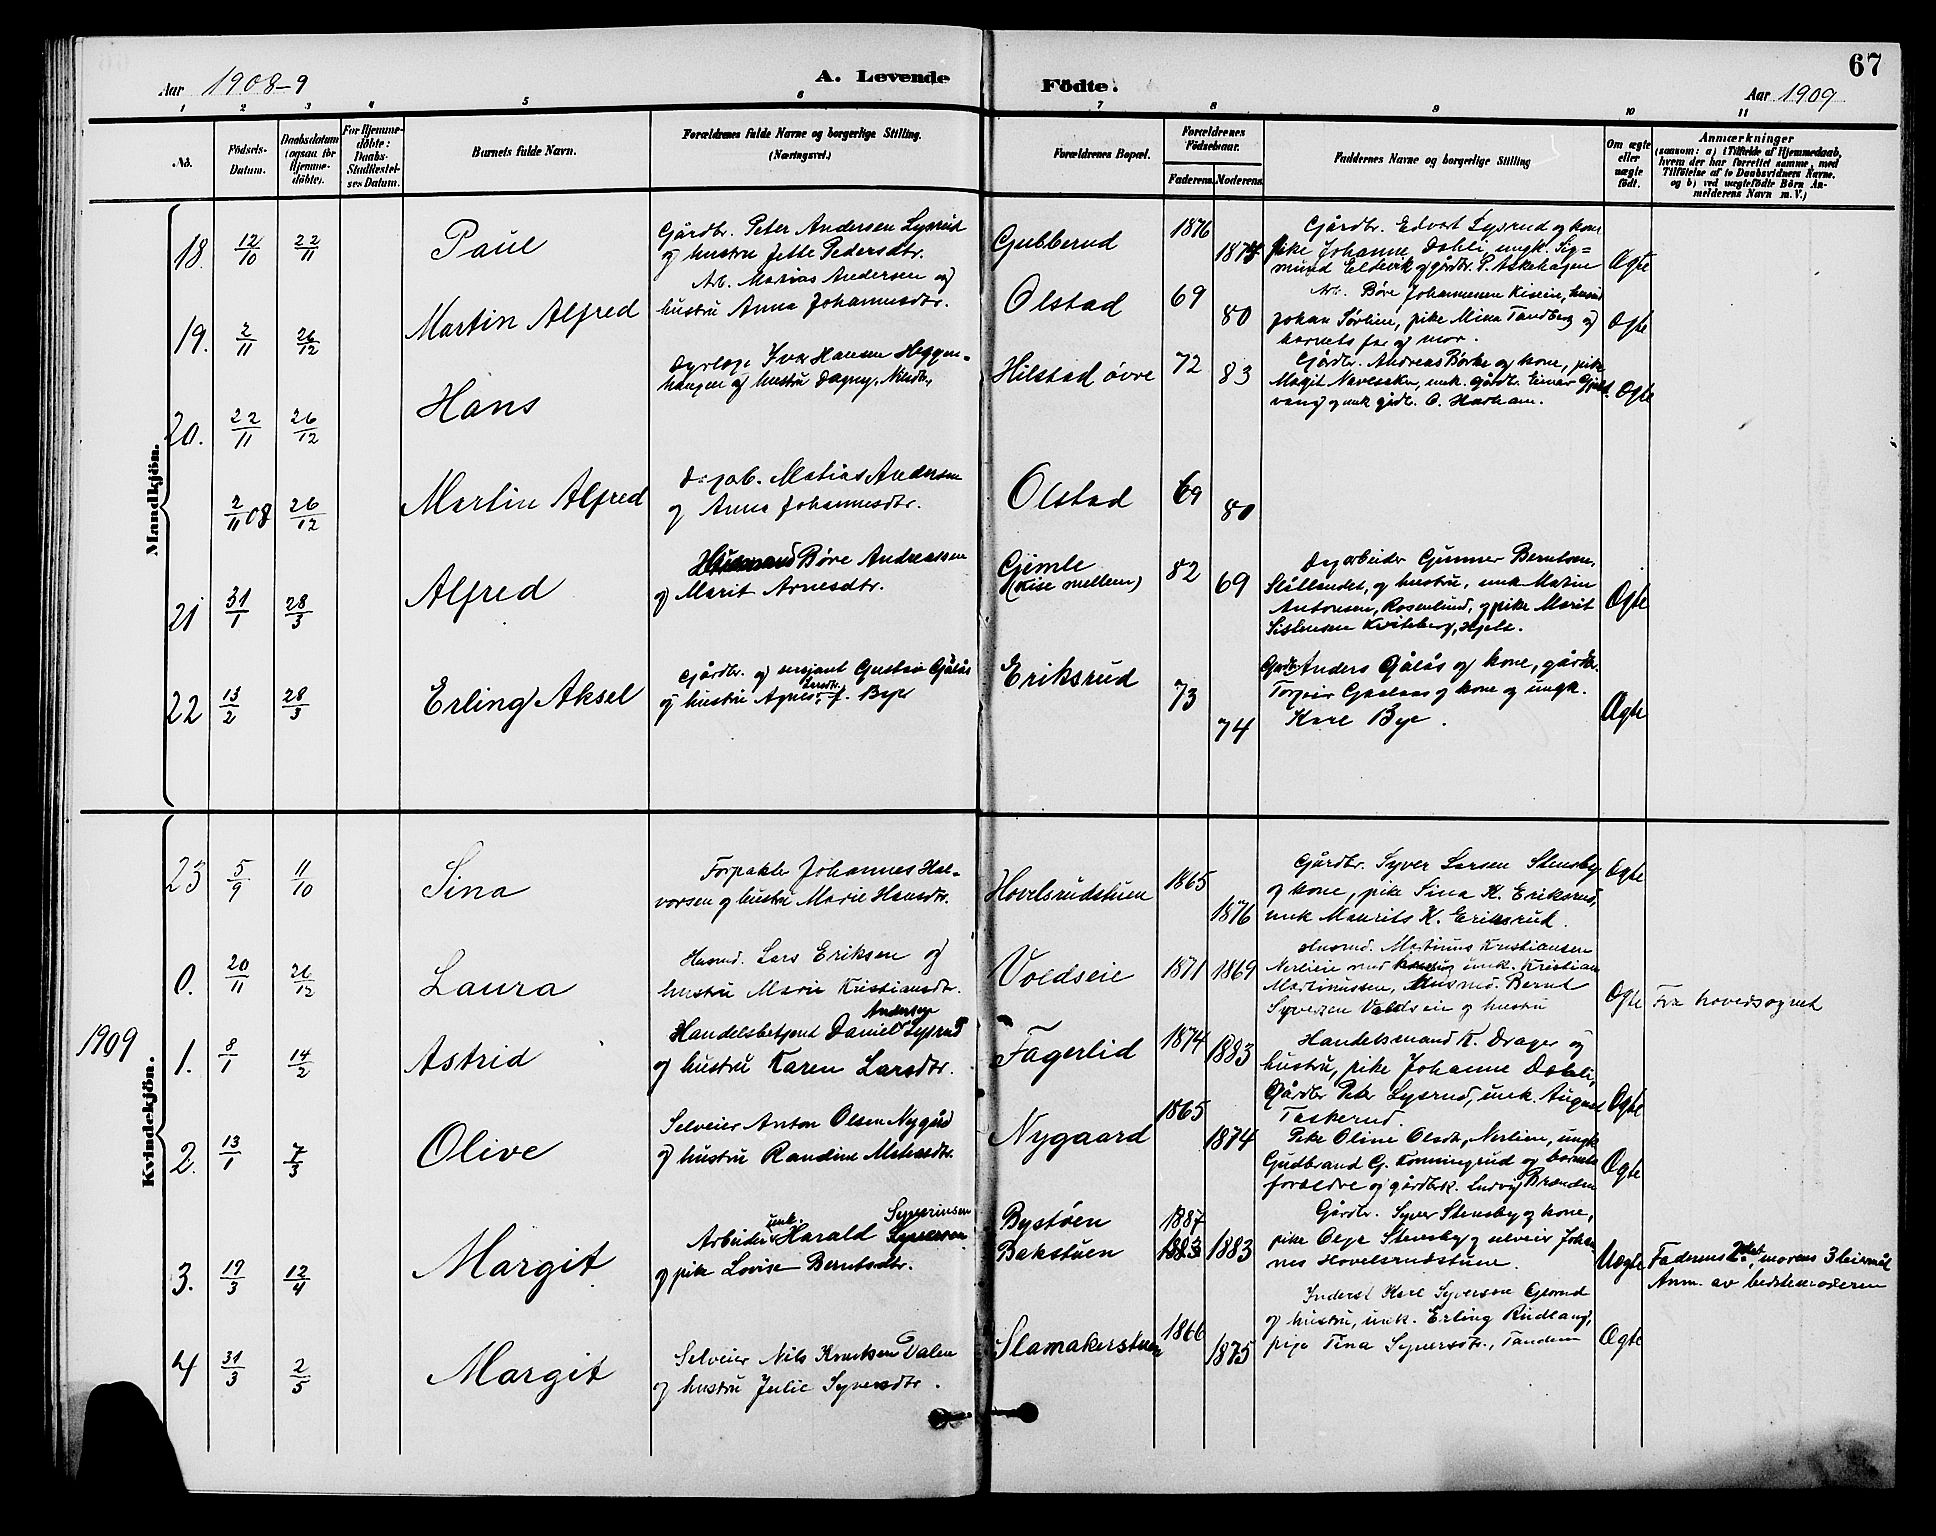 Aar 1908-9
A. Levende
Födte.
Aar 1909
67
1 2 3 4 5 6 7 8 9 10 11
No.
Födsels-Datum.
Daabsdatum (ogsaa for Hjemme-döbte).
For Hjemme-döbte: Daabs-Stadfæstel-ses Datum.
Barnets fulde Navn.
Forældrenes fulde Navne og borgerlige Stilling.
(Næringsvei.)
Forældrenes Bopæl.
Forældrenes Födselsaar.
Faderens. Moderens.
Faddernes Navne og borgerlige Stilling
Om ægte eller uægte födt.
Anmærkninger
(saasom: a) i Tilfælde af Hjemmedaab,
hvem der har forrettet samme, med
Tilföielse af to Daabsvidners Navne.
og b) ved uægtefödte Börn An-
melderens Navn m. V.)
Mandkjön.
18. 12/10 22/11 Paul
Gårdbr. Peter Andersen Lysrud
og hustru Jette Pedersdtr.
Gubberud 1876
Gårdbr. Edvart Lysrud og kone
pike Johanne Dahli, ungk. Sig=
mund Eldevik og gårdbr. P. Askehagen
Ægte
19. 2/11 26/12 Martin Alfred
Arb. Matias Andersen og
hustru Anna Johannesdtr.
Olstad 69 80
Arb. Böre Johannesen Kiseie, husmd
Johan Sörlien, pike Mina Tandberg og
barnets far og mor.
Ægte
20. 22/11 26/12 Hans
Dyrlæge Ivar Hansen Heggen-
haugen og hustru Dagny, Nilsdtr,
Hilstad övre 72 83
Gårdbr. Andreas Börke og kone, pike
Magit Naveseker, unk. gårdbr. Einar
vang og unk gårdbr. O. Harham.
Ægte
2/11 08 26/12 Martin Alfred
Dagarb. Matias Andersen
og Anna Johannesdtr.
Olstad 69 80
21 31/1 28/3 Alfred
Husmand Böre Andreassen
og Marit Arnesdtr.
Gjemle
(Kise mellem) 82 69
Dagarbeider Gunnar Berntsen,
Stållandet, og hustru, unk Martin
Antonsen, Rosenlund, og pike Marit
Sistensen Kviteberg, Hjelt.
Ægte
22 13/2 28/3 Erling Aksel
Gårdbr. og sersjant Gustav Gålås
og hustru Agnes f. Bye
Eriksrud 73 74
Gårdbr. Anders Gålås og kone, gårdbr.
Torger Gaalaas og kone og ungk.
Karl Bye.
Ægte
Kvindekjön.
23 5/9 11/10 Sina
Forpakter Johannes Hal-
vorsen og hustru Marie Hansdtr.
Hovelsrudstuen 1865 1876
Gårdbr. Syver Larsen Stensby
og kone, pike Sina K. Eriksrud,
unk Maurits K. Eriksrud.
Ægte
0. 20/11 26/12 Laura
Husmd. Lars Eriksen og
hustru Marie Kristiansdtr.
Voldseie 1871 1869
Husmd. Martinus Kristiansen
Nerlieie med unk. Kristian
Martinussen, Husmd. Bernt
Syversen Voldseie og hustru
Ægte
Fra hovedsognet
1909
1. 8/1 14/2 Astrid
Andersen
Handelsbetjent Daniel Lysrud
og hustru Karen Larsdtr.
Fagerlid 1874 1883
Handelsmand K. Drager og
hustru, pike Johanne Dahli,
Gårdbr Peter Lysrud, unk. August
Taskerud.
Ægte
2. 13/1 7/3 Olive
Selveier Anton Olsen Nygård
og hustru Randine Matiasdtr.
Nygaard 1865 1874
Pike Oline Olsdtr, Nerlien, ungk
Gudbrand G. Konningrud og barnets
forældre og gårdbr. Ludvig Brænden
Ægte
3. 19/3 12/4 Margit
Arbeider unk. Harald Syverinsen
og pike Lovise Berntsdtr.
Bystöen 1887
Bakstuen 1883
Gårdbr. Syver Stensby og kone,
pike Olga Stensby og selveier Johan-
nes Hovelsrudstuen.
Uægte
Faderens 2det, morens 3 leiermål
Anm. av bedstemoderen
4 31/3 2/5 Margit
Selveier Nils Knutsen Dalen
og hustru Julie Syversdtr.
Slamakerstuen 1866 1875
Inderst Karl Syversen Gjesrud
og hustru, unk. Erling Rudlang,
pige Tina Syversdtr., Tandem
Ægte